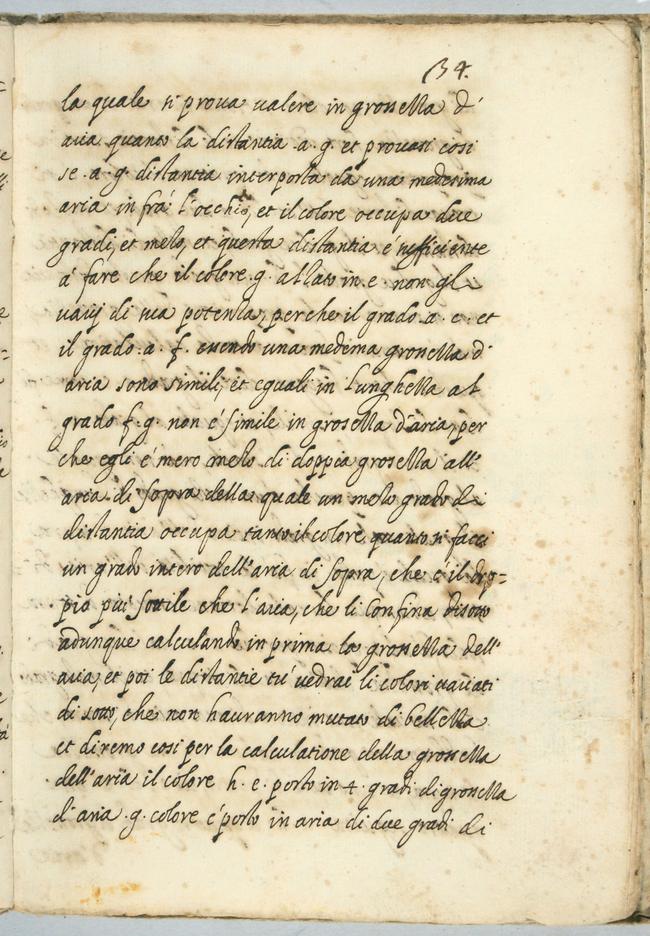 34.
la quale si prova valere in grossezza d'
aria quanto la distantia .a. g. et provasi così
se .a. g. distantia interposta da una medesima
aria in frà l'occhio, et il colore occupa due
gradi, et mezo, et questa distantia è sufficiente
à fare che il colore .g. alzato in .e. non gl
varij di sua potenza, perche il grado .a. c. et
il grado .a. f. essendo una medema grossezza d'
aria sono simili, et equali in lunghezza al
grado f. g. non è simile in grossezza d'aria, per
che egli è mezo di doppia grossezza all'
aria di sopra della quale un mezo grado di
distantia occupa tanto il colore quanto si facci
un grado intero dell'aria di sopra, che è il dop=
pio più sottile che l'aria, che li confina disotto
adunque calculando in prima la grossezza dell'
aria, et poi le distantie tù vedrai li colori variati
di sotto, che non hauranno mutato di bellezza
et diremo cosi per la calculatione della grossezza
dell'aria il colore h. e. posto in 4. gradi di grossezza
d'aria .g. colore è posto in aria di due gradi di